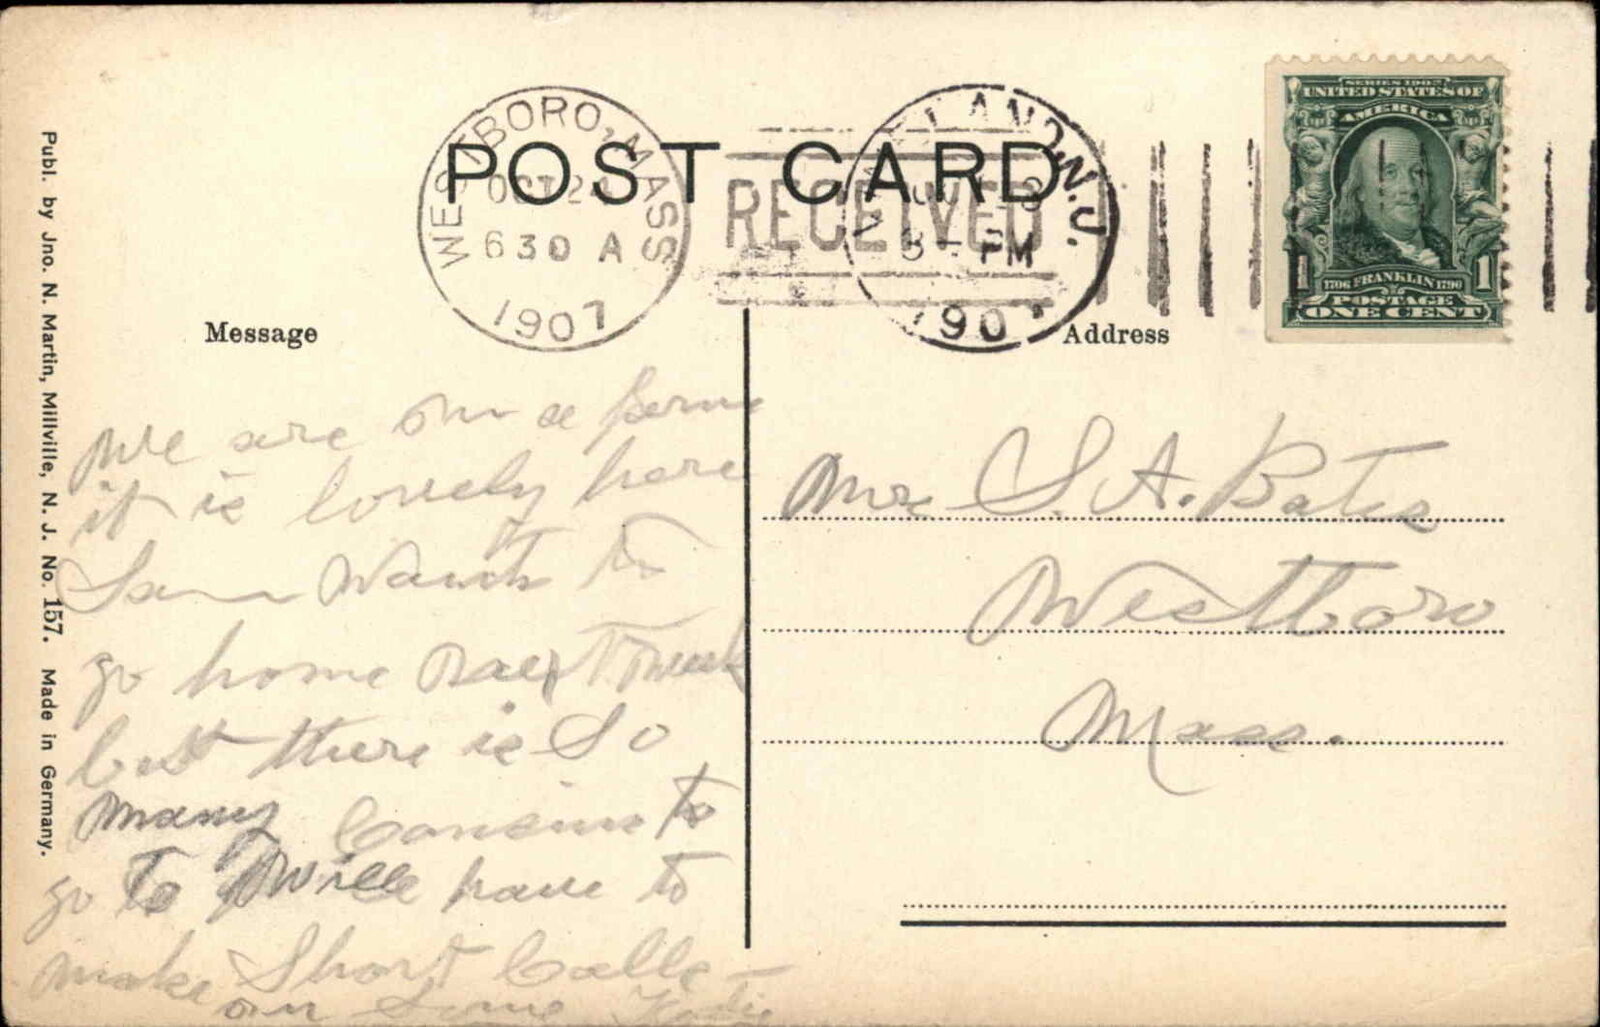 POST CARD
WESTBORO, MASS
OCT 2
630 A
1907
RECEIVED
LAND, N.J.
8 - PM
190
SERIES 1902
UNITED STATES OF
AMERICA
1 1706 FRANKLIN 1790 1
POSTAGE
ONE CENT
Publ. by Jno. N. Martin, Millville, N. J. No. 157. Made in Germany.
Message
We are on a farm
it is lovely here
Sam wants to
go home next week
but there is so
many Cousins to
go to will have to
make Short Calls
on some
Address
Mrs S. A. Bates
Westboro
Mass.